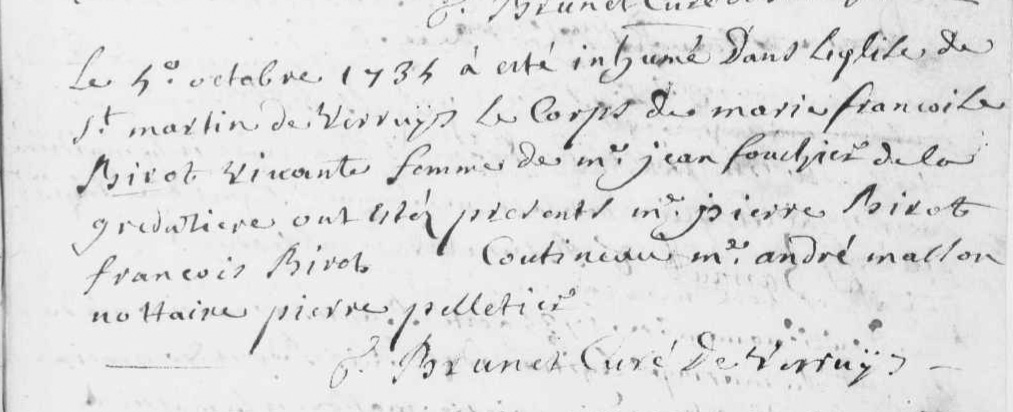 f. Brunet Curé de
Le 5e. octobre 1735 à esté inhumé Dans Leglise de
St martin de Verruÿs le Corps de marie francoise
Birot vivante femme de mr. jean fouchier de la
ont estéz presents mr. pierre Birot
francois Birot Coutineau mr. andré masson
nottaire pierre pelletier
f. Brunet Curé De Verruÿs